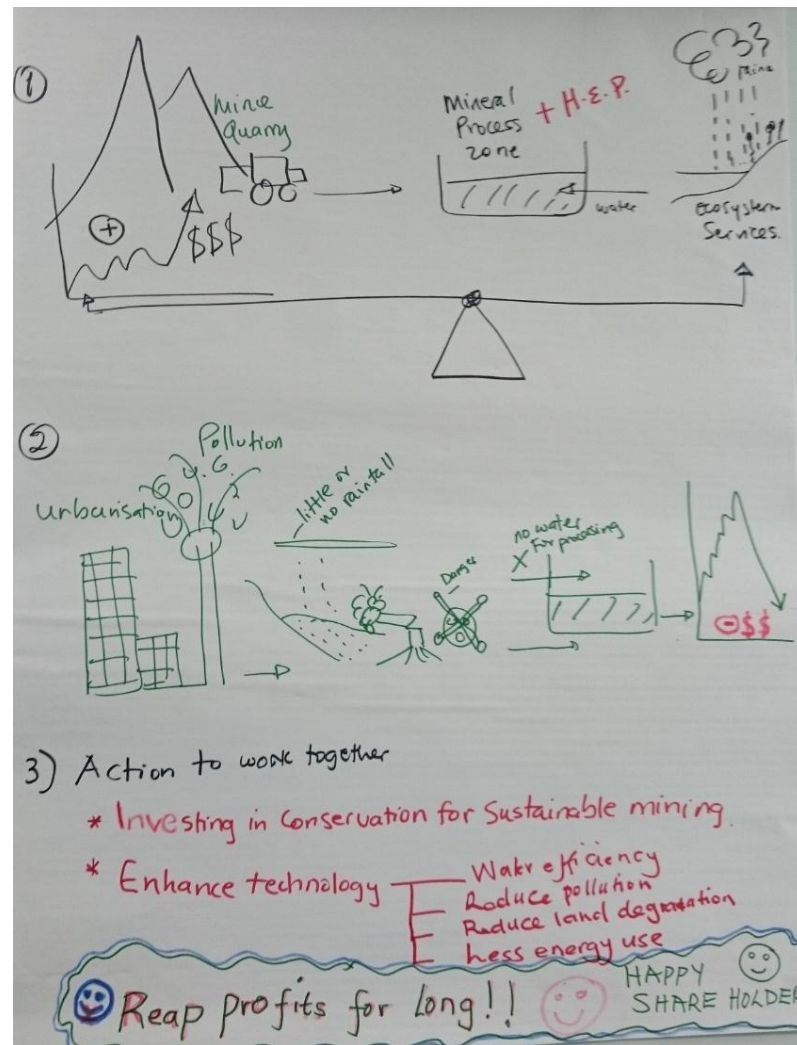 ①
Mine
Quarry
⊕
$$$
Mineral
Process
zone
+ H.E.P.
water
Ecosystem
Services.
②
Pollution
urbanisation
little or
no rainfall
Danger
no water
X For processing
⊖$$
3) Action to work together
* Investing in Conservation for Sustainable mining.
* Enhance technology
Water efficiency
Reduce pollution
Reduce land degradation
Less energy use
Reap profits for Long!!
HAPPY
SHARE HOLDER